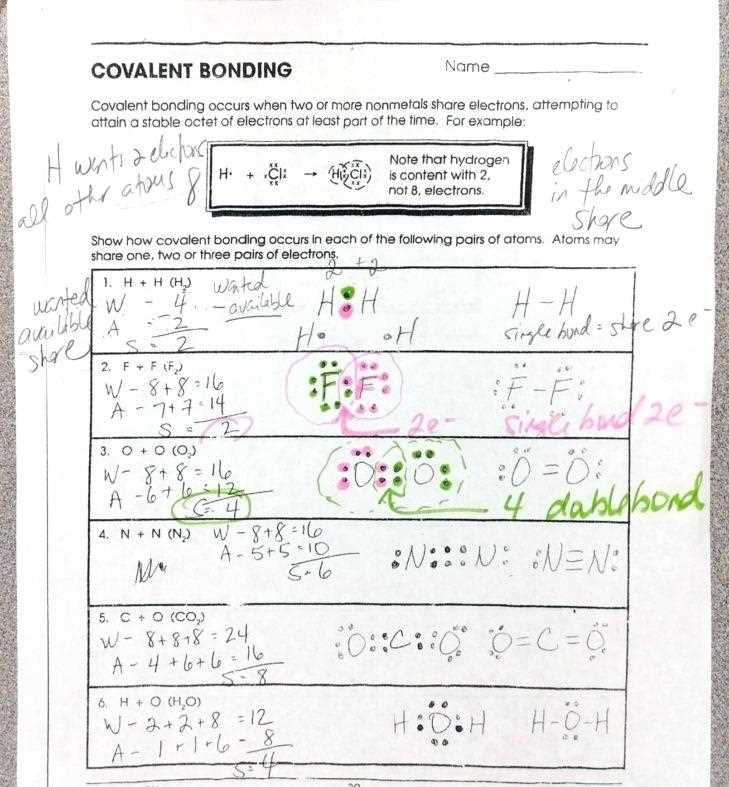 COVALENT BONDING
Name
Covalent bonding occurs when two or more nonmetals share electrons, attempting to
attain a stable octet of electrons at least part of the time. For example:
H wants 2 electrons
all other atoms 8
H· + Cl → H Cl
Note that hydrogen
is content with 2,
not 8, electrons.
electrons
in the middle
share
Show how covalent bonding occurs in each of the following pairs of atoms. Atoms may
share one, two or three pairs of electrons.
wanted
available
share
1. H + H (H₂)
W - 4
A - 2
S = 2
wanted
- available
2 + 2
H : H
H• •H
H - H
single bond = share 2 e-
2. F + F (F₂)
W - 8+8=16
A - 7+7=14
S = 2
F F
2e-
:F - F:
single bond 2e-
3. O + O (O₂)
W - 8+8=16
A - 6+6=12
S= 4
:O::O:
:O = O:
4 dablebond
4. N + N (N₂)
W - 8+8=16
A - 5+5=10
S=6
:N:::N:
:N≡N:
5. C + O (CO₂)
W - 8+8+8=24
A - 4+6+6=16
S=8
:O::C::O
O=C=O
6. H + O (H₂O)
W - 2+2+8 =12
A - 1+1+6 - 8
S=4
H:O:H
H-O-H